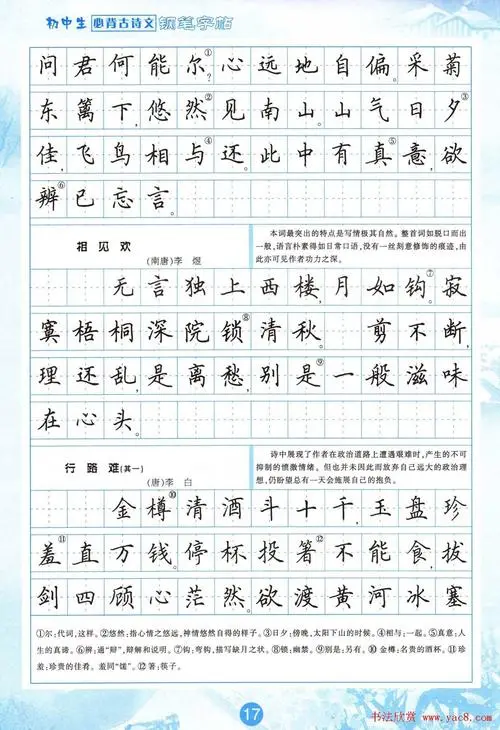 初中生 必背古诗文 钢笔字帖
问君何能尔①?心远地自偏。采菊
东篱下,悠然②见南山。山气日夕③
佳,飞鸟相与④还。此中有真意⑤,欲
辨⑥已忘言。
相见欢
(南唐)李 煜
本词最突出的特点是写情极其自然。整首词如脱口而出
一般,语言朴素得如日常口语,没有一丝刻意修饰的痕迹,由
此亦可见作者功力之深。
无言独上西楼,月如钩⑦。寂
寞梧桐深院锁⑧清秋。 剪不断,
理还乱,是离愁,别是⑨一般滋味
在心头。
行路难(其一)
(唐)李 白
诗中展现了作者在政治道路上遭遇艰难时,产生的不可
抑制的愤激情绪。但也并未因此而放弃自己远大的政治理
想,仍盼望总有一天会施展自己的抱负。
金樽⑩清酒斗十千,玉盘珍
羞⑪直万钱。停杯投箸⑫不能食,拔
剑四顾心茫然。欲渡黄河冰塞
①尔:代词,这样。②悠然:指心情之悠远,神情悠然自得的样子。③日夕:傍晚,太阳下山的时候。④相与:一起。⑤真意:人
生的真谛。⑥辨:通“辩”,辩解和说明。⑦钩:弯钩,描写缺月之状。⑧锁:幽禁。⑨别是:另有。⑩金樽:名贵的酒杯。⑪珍
羞:珍贵的佳肴。羞同“馐”。⑫箸:筷子。
17
书法欣赏 www.yac8.com